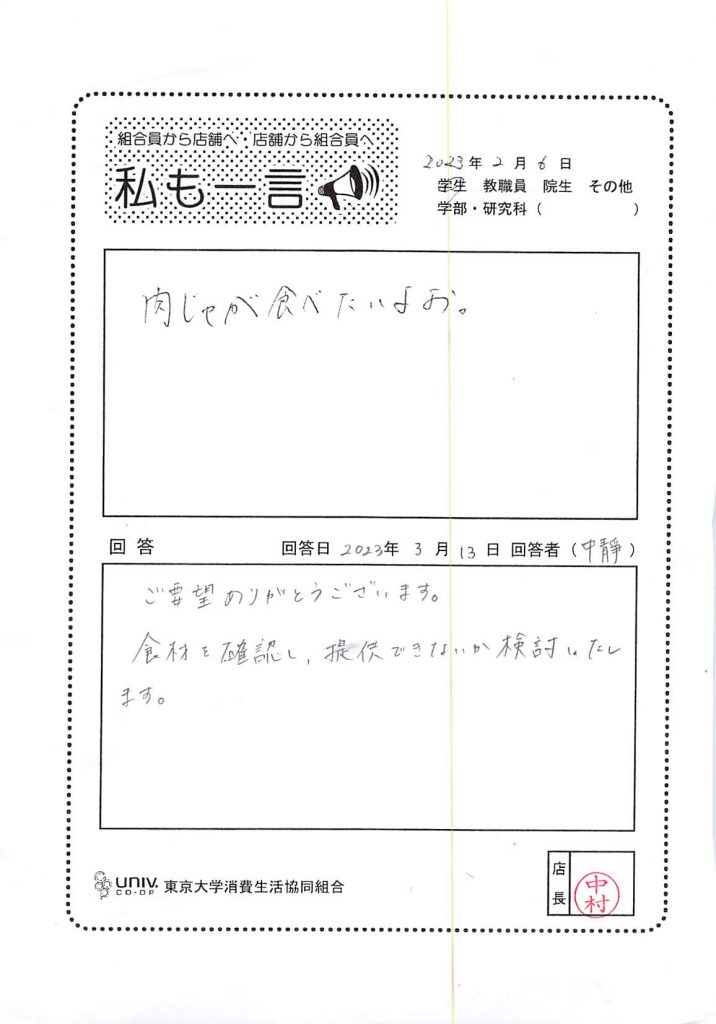 組合員から店舗へ・店舗から組合員へ
私も一言
2023年2月6日
学生 教職員 院生 その他
学部・研究科（ ）
肉じゃが食べたいよお。
回答 回答日 2023年 3月13日 回答者（中靜）
ご要望ありがとうございます。
食材を確認し、提供できないか検討いたし
ます。
UNIV.
CO-OP
東京大学消費生活協同組合
店長
中村